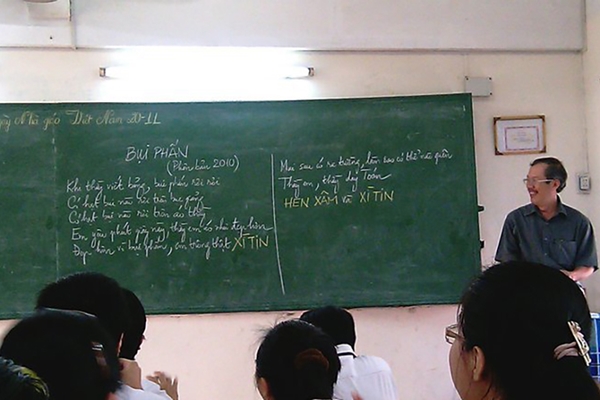 Ngày Nhà giáo Việt Nam 20-11
BỤI PHẤN
(Phiên bản 2010)
Khi thầy viết bảng, bụi phấn rơi rơi
Có hạt bụi nào rơi trên bục giảng
Có hạt bụi nào rơi trên áo thầy
Em yêu phút giây này, thầy em có nhìu đẹp hơn
Đẹp hơn vì bụi phấn, em trông thật XÌ TIN
Mai sau có ra trường, làm sao có thể nào quên
Thầy em, thầy dạy Toán
HEN XÂM và XÌ TIN